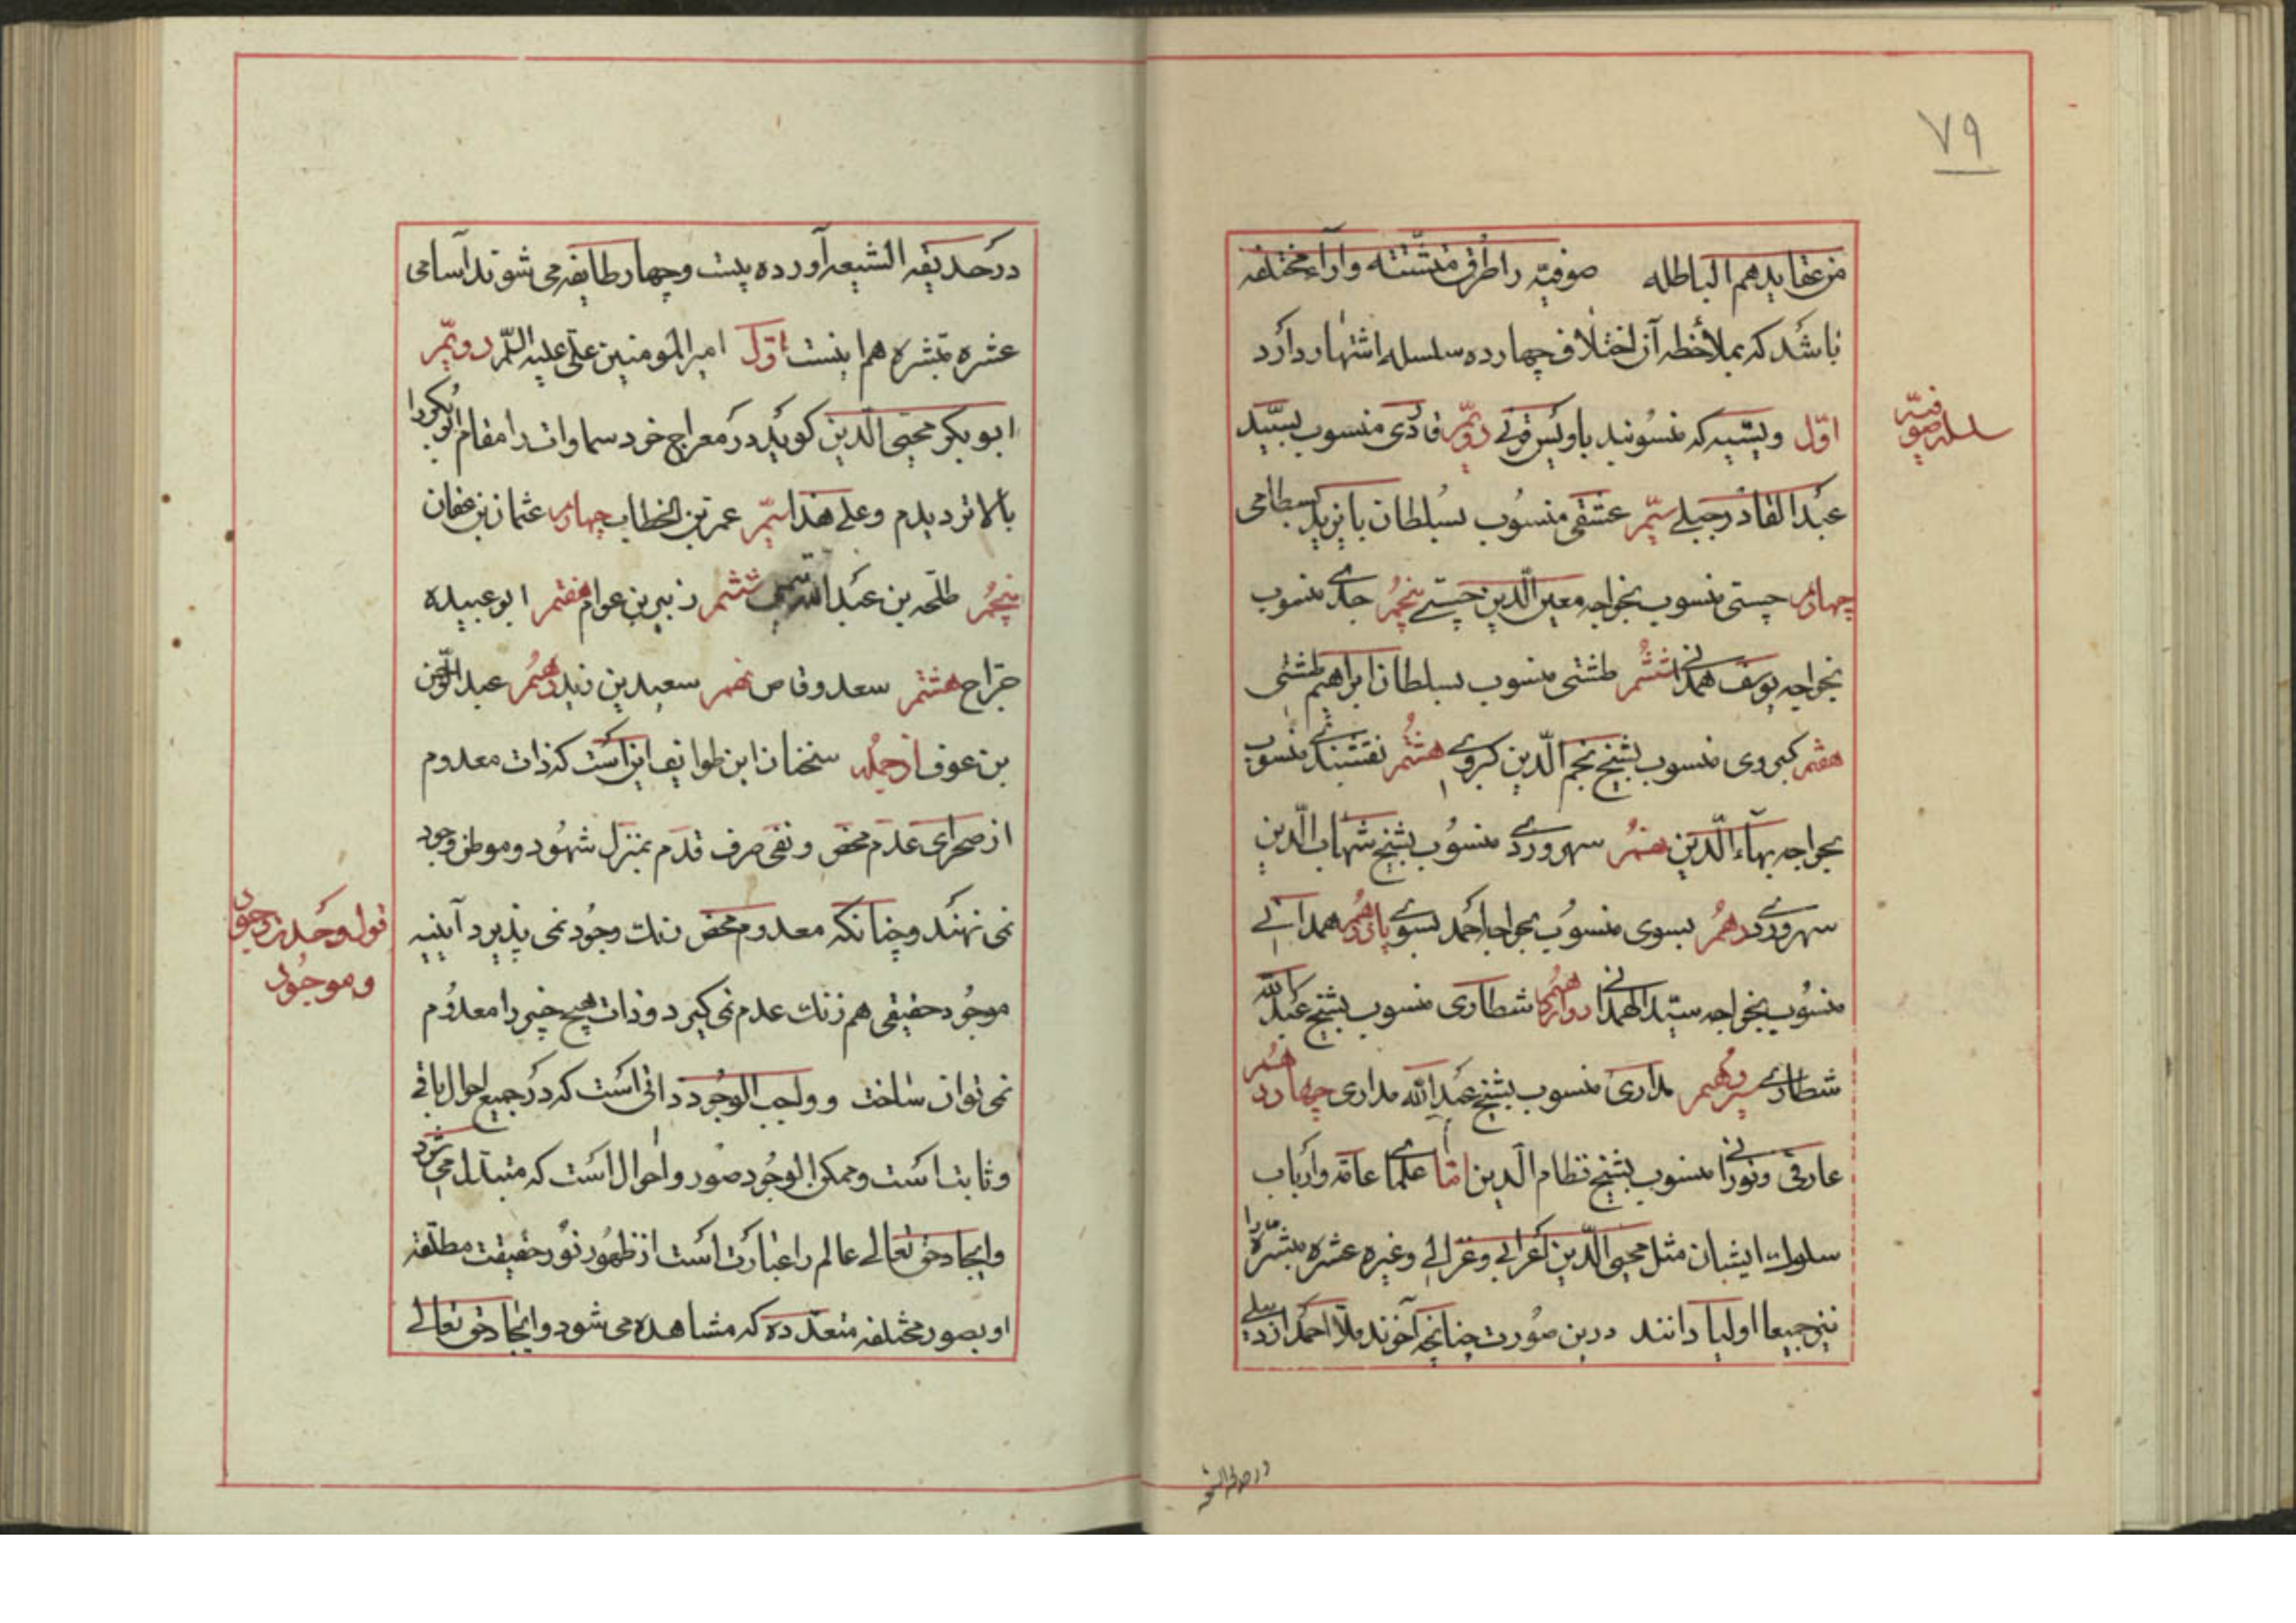 ۷۹
من عقایدهم الباطله صوفیّه را طرق متشتته و آراء مختلفه
باشد که بملاحظه آن اختلاف چهارده سلسله اشتهار دارد
سلسله صوفیّه
اوّل ویسیه که منسوبند باویس قرنی دویّم قادری منسوب بسیّد
عبدالقادر جیلی سیّم عشقی منسوب بسلطان بایزید بسطامی
چهارم چستی منسوب بخواجه معین الدین چستی پنجم جدی منسوب
بخواجه یوسف همدانی ششم طشتی منسوب بسلطان ابراهیم طشتی
هفتم کبروی منسوب بشیخ نجم الدین کبروی هشتم نقشبندی منسوب
بخواجه بهاء الدین نهم سهروردی منسوب بشیخ شهاب الدین
سهروردی دهم یسوی منسوب بخواجه احمد یسوی یازدهم همدانی
منسوب بخواجه سیّد الهمدانی دوازدهم شطاری منسوب بشیخ عبدالله
شطاری سیزدهم مداری منسوب بشیخ عبدالله مداری چهاردهم
عارفی و نورانی منسوب بشیخ نظام الدین امّا علمای عامّه و ارباب
سلوک ایشان مثل محیی الدین اعرابی و غزالی و غیره عشره مبشّره را
نیز جمیعا اولیا دانند درین صورت چنانچه آخوند ملا احمد اردبیلی
در حدیقه الشیعه
در حدیقه الشیعه آورده بیست و چهار طایفه می شوند آسامی
عشره مبشره هم اینست اوّل امیر المومنین علی علیه السّلم دویّم
ابوبکر محیی الدین کوید در معراج خود سماوات را مقام ابوبکر را
بالاتر دیدم و علی هذا سیّم عمر بن الخطاب چهارم عثمان بن عفان
پنجم طلحه بن عبدالله تیمی ششم زبیر بن عوام هفتم ابوعبیده
جراح هشتم سعد وقاص نهم سعید بن زید دهم عبدالرحمن
بن عوف از جمله سخنان این طوایف این است که ذات معدوم
از صحرای عدم محض و نفی صرف قدم بمنزل شهود و موطن وجود
نمی نهند و چنانکه معدوم محض رنک وجود نمی پذیرد آینیه
قول وحدت وجود
و موجود
موجود حقیقی هم زنک عدم نمی کیرد و ذات هیچ چیز را معدوم
نمی توان ساخت و واجب الوجود ذاتی است که در جمیع احوال باقی
و ثابت است و ممکن الوجود صور و احوال است که متبدل می شود
و ایجاد حق تعالی عالم را عبارت است از ظهور نور حقیقت مطلقه
او بصور مختلفه متعدده که مشاهده می شود و ایجاد حق تعالی